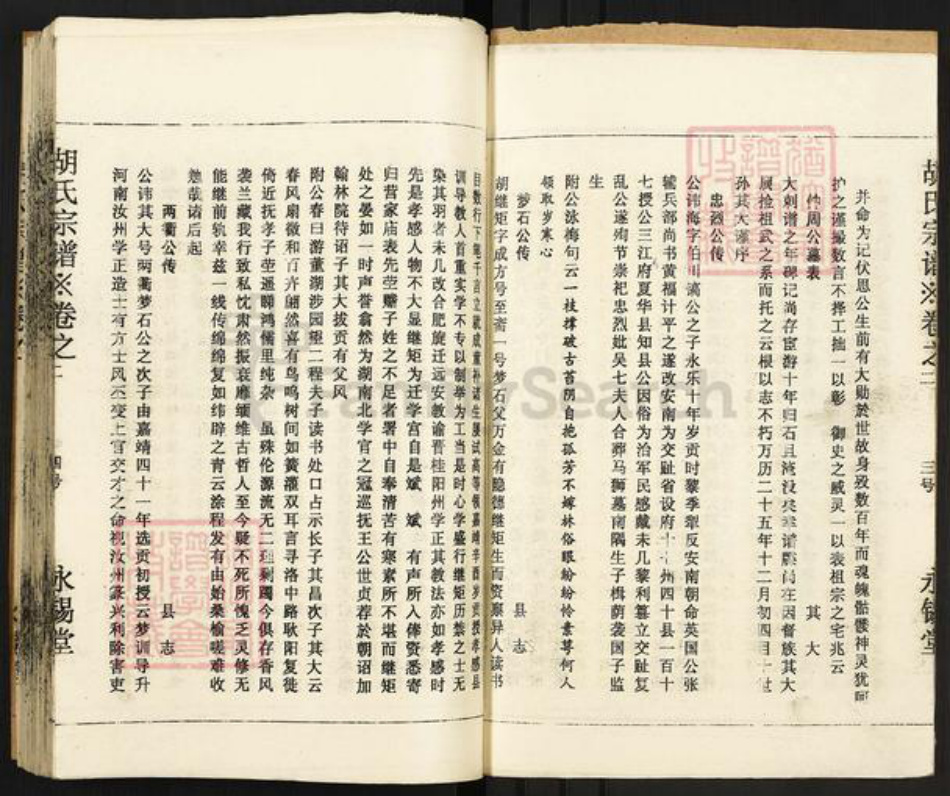 胡氏宗谱※卷之二
永锡堂
并命为记伏思公生前有大勋於世故身殁数百年而魂魄骸髅神灵犹
护之谨撮数言不择工拙一以彰 御史之威灵一以表祖宗之宅兆云
仲周公墓表 其大
大刺谱之年碑记尚存宦游十年归石且淹没矣幸谱牒尚在因督族其大
展捡祖武之系而托之云根以志不朽万历二十五年十二月初四日十世
孙其大谨序
忠烈公传
公讳海字伯川滴公之子永乐十年岁贡时黎季犁反安南朝命英国公张
辅兵部尚书黄福计平之遂改安南为交趾省设府十七州四十县一百五十
七授公三江府夏华县知县公因俗为治军民感戴未几黎利篡立交趾复
乱公遂殉节崇祀忠烈妣吴七夫人合葬马狮墓南隅生子楫荫袭国子监
生
附公泳梅句云一枝撑破古苔阴自抱孤芳不嫁林俗眼纷纷怜素萼何人
领取岁寒心
梦石公传 县志
胡继矩字成方号至斋一号梦石父万金有隐德继矩生而资禀异人读书
目数行下笔千言立就成童补诸生屡试高等领嘉靖辛酉岁贡授孝感县
训导教人首重实学不专以制举为工当是时心学盛行继矩历禁之士无
染其羽者未几改合肥旋迁远安教谕晋桂阳州学正其教法亦如孝感时
先是孝感人物不大显继矩为迁学宫自是斌斌有声所入俸资悉寄
归营家庙表先茔赡子姓之不足者署中自奉清苦有寒素所不堪而继矩
处之晏如一时声誉翕然为湖南北学官之冠巡抚王公世贞荐於朝诏加
翰林院待诏子其大拔贡有父风
附公春日游董湖涉园望二程夫子读书处口占示长子其昌次子其大云
春风扇微和百卉翩然喜有鸟鸣树间如簧灌双耳言寻洛中路耿阳复徙
倚近抚孝子茔遥睇鸿儒里纯杂 虽殊伦源流无二理剩躅今俱存香风
袭兰藏我行致私忱肃然振衰靡缅维古哲人至今疑不死所愧乏灵修无
能继前轨幸兹一线传绵绵复如纬辟之青云涂程发有由始桑榆嗟难收
勉哉诸后起
两衢公传 县志
公讳其大号两衢梦石公之次子由嘉靖四十一年选贡初授云梦训导升
河南汝州学正造士有方士风丕变上官交才之命视汝州篆兴利除害吏
胡氏宗谱※卷之二
四号
永锡堂